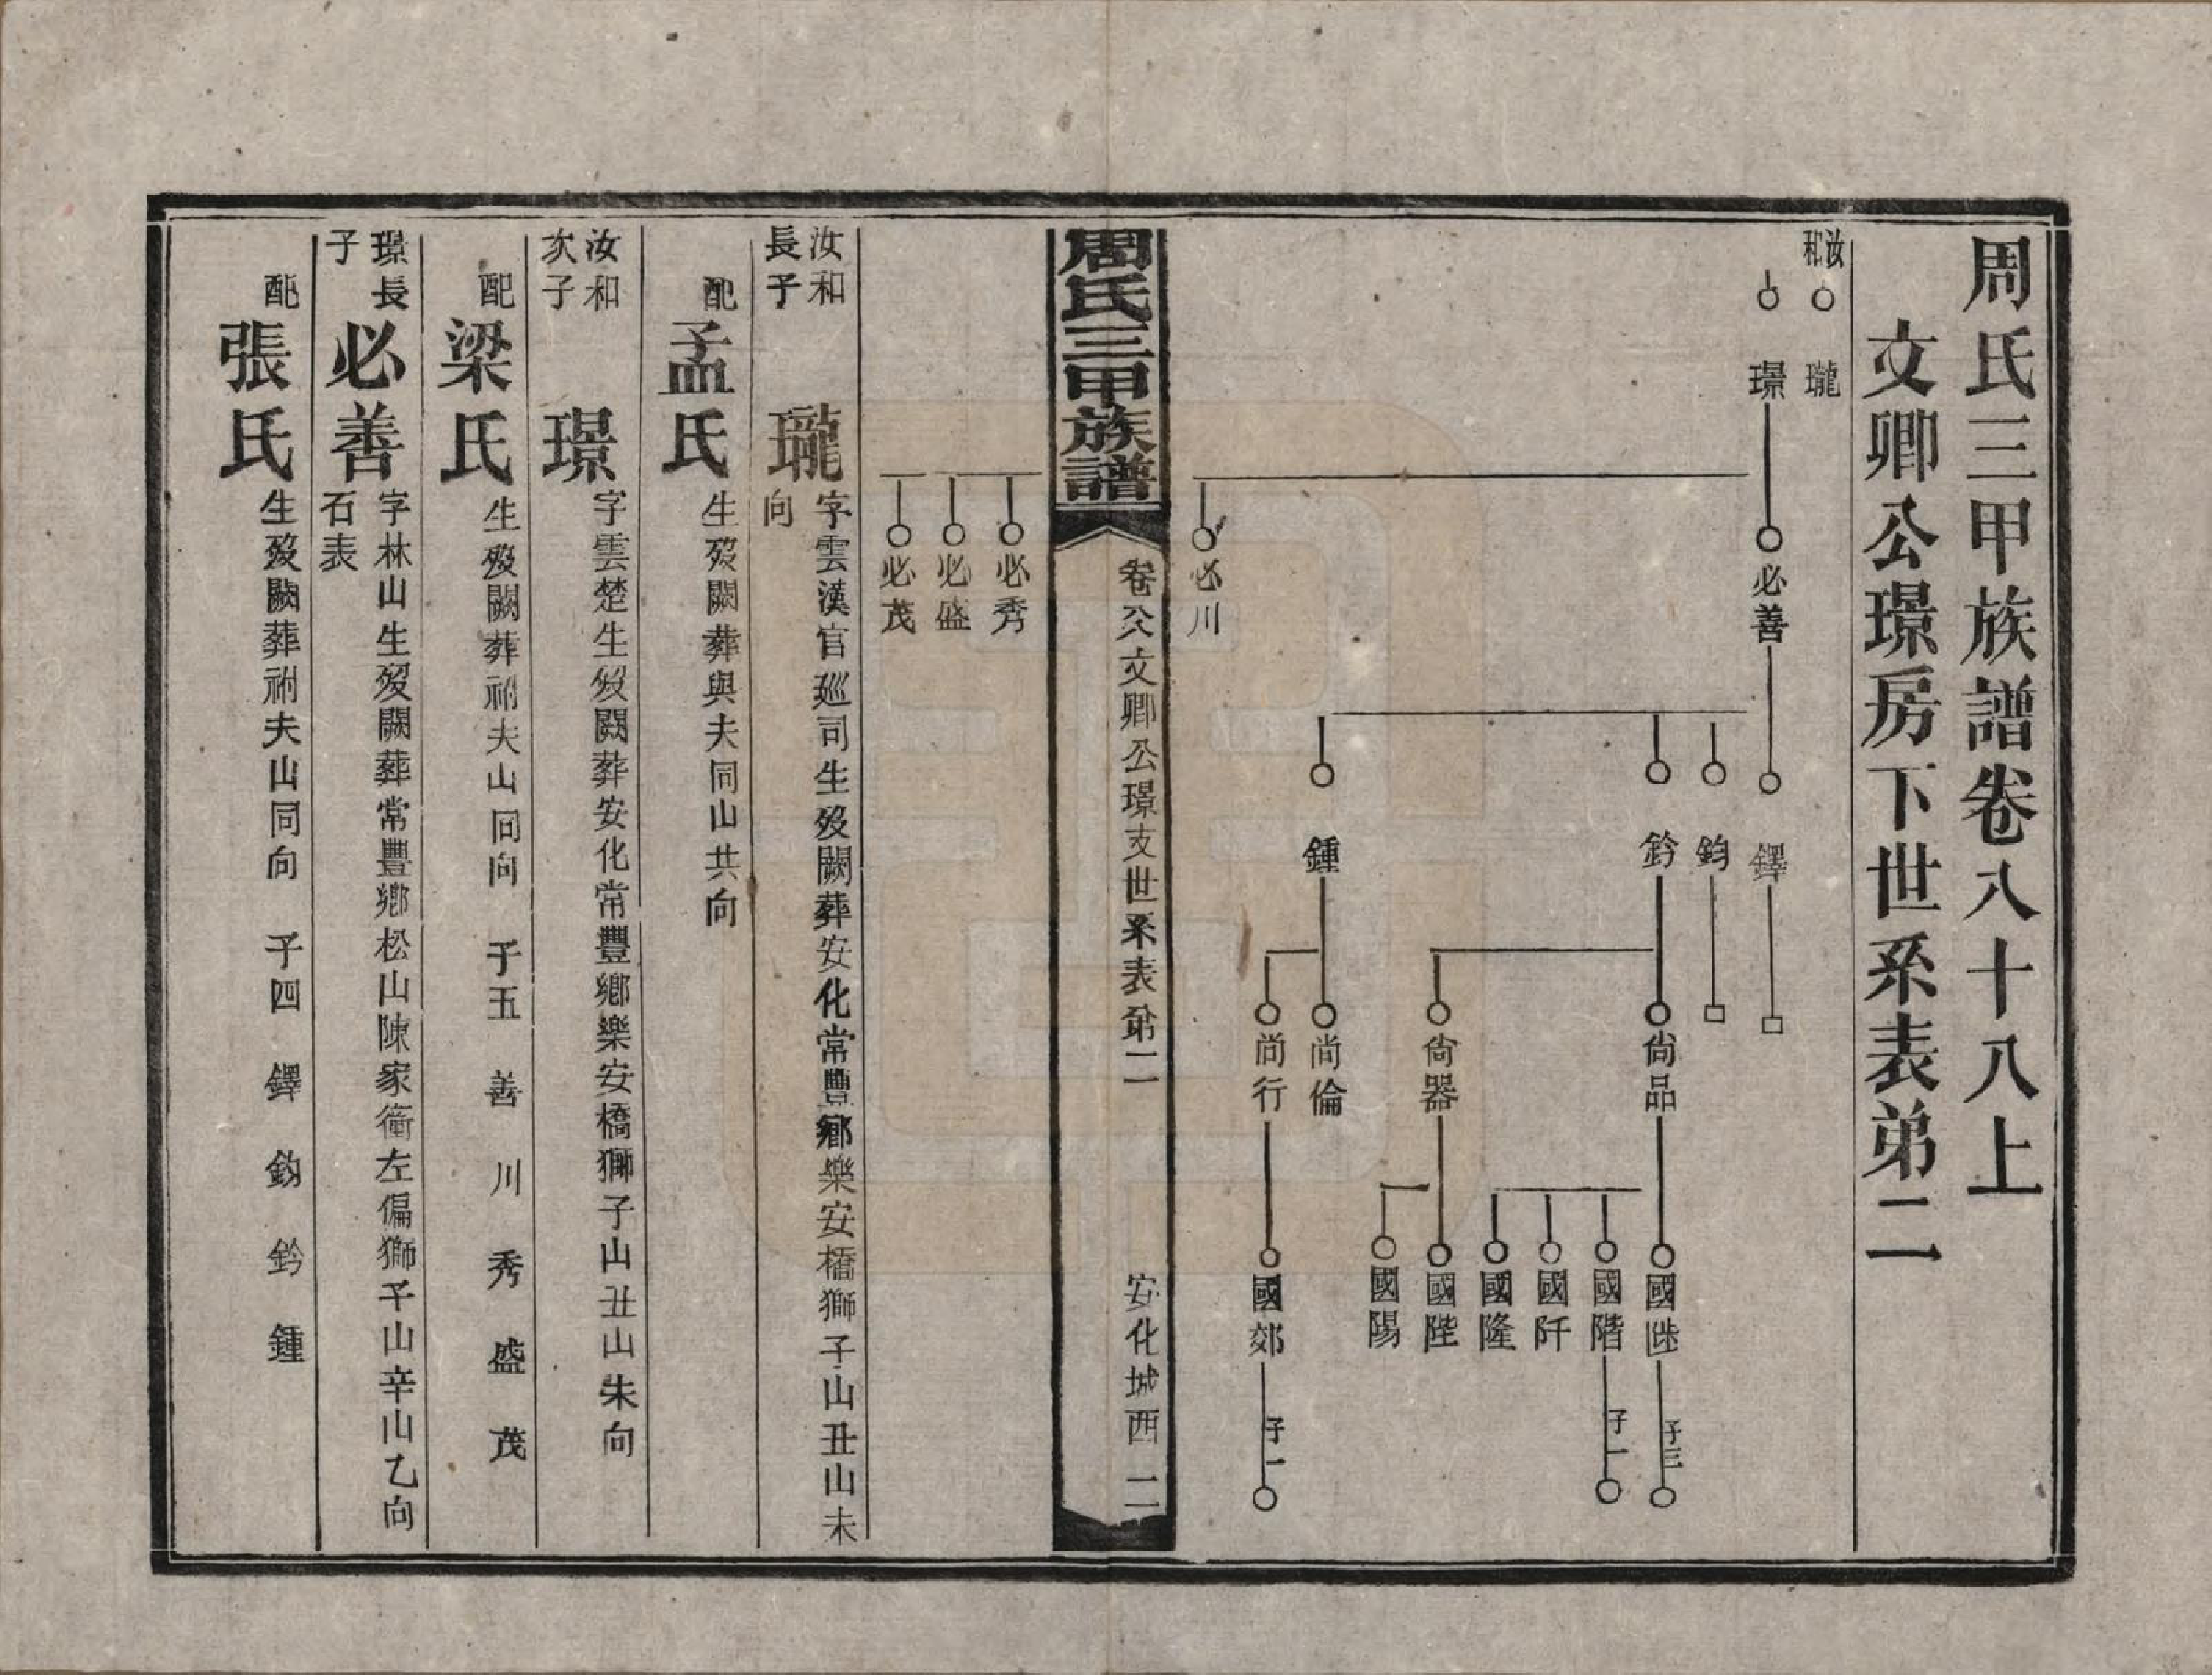 周氏三甲族譜卷八十八上
文卿公璟房下世系表弟二
汝和
瓏
璟
必善
鐸
鈞
鈐
尚品
國陞
子三
國階
子一
國阡
國隆
尚器
國陛
國陽
鍾
尚倫
尚行
國郊
子一
必川
周氏三甲族譜
卷八八文卿公璟支世系表弟二
安化城西
二
必秀
必盛
必茂
汝和長子
瓏
字雲漢官廵司生歿闕葬安化常豐鄉樂安橋獅子山丑山未向
配
孟氏
生歿闕葬與夫同山共向
汝和次子
璟
字雲楚生歿闕葬安化常豐鄉樂安橋獅子山丑山朱向
配
梁氏
生歿闕葬祔夫山同向 子五 善 川 秀 盛 茂
璟長子
必善
字林山生歿闕葬常豐鄉松山陳家衝左偏獅子山辛山乙向石表
配
張氏
生歿闕葬祔夫山同向 子四 鐸 鈞 鈐 鍾